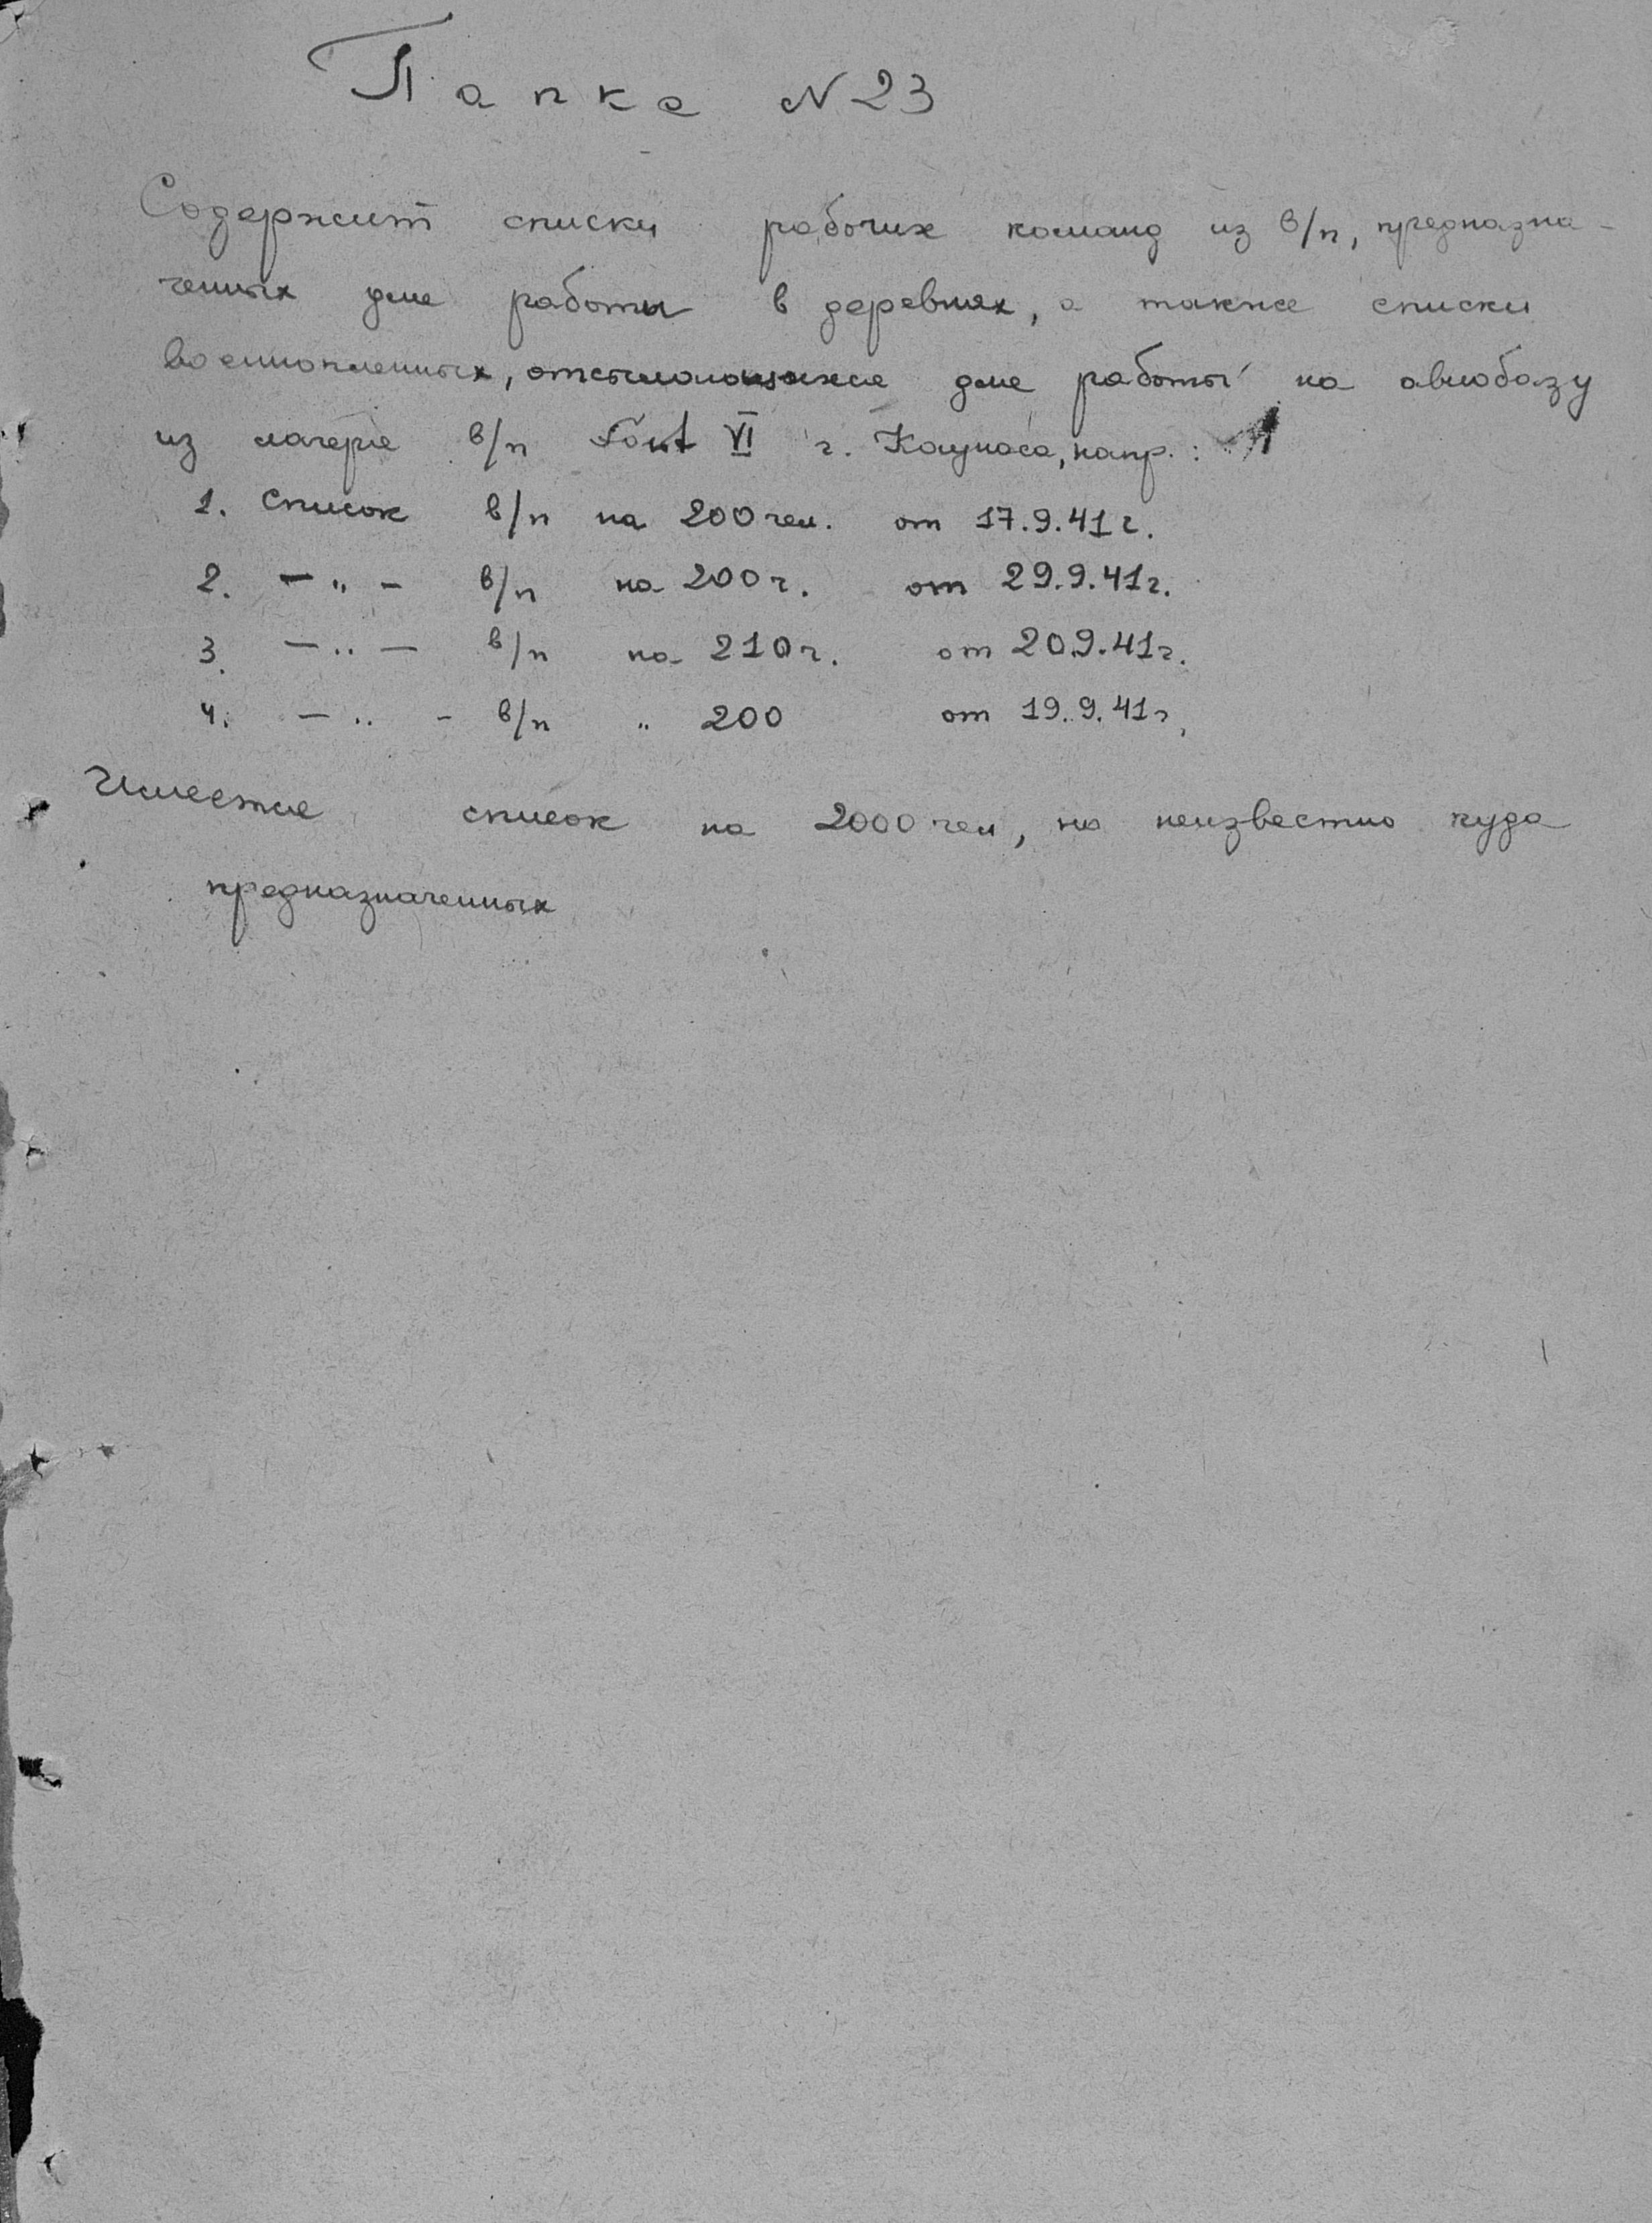 Папка N 23
Содержит списки рабочих команд из в/п, предназна-
ченных для работы в деревнях, а также списки
военнопленных, отсылающихся для работы на авиобазу
из лагеря в/п Fort VI г. Каунаса, напр.:
1. Список в/п на 200 чел. от 17.9.41 г.
2. — " — в/п на 200 ч. от 29.9.41 г.
3. — " — в/п на 210 ч. от 20.9.41 г.
4. — " — в/п " 200 от 19.9.41 г.
Имеется список на 2000 чел, но неизвестно куда
предназначенных